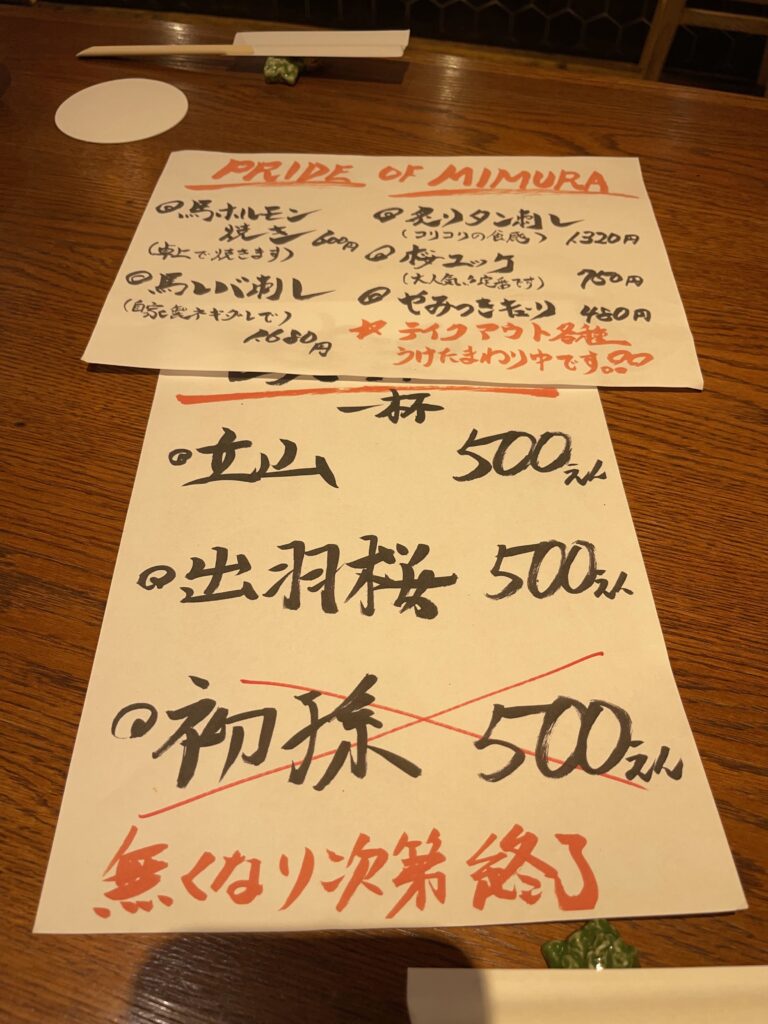 PRIDE OF MIMURA
馬ホルモン
焼き 600円
(卓上で焼きます)
馬レバ刺し
(自家製ネギダレで)
1.680円
炙りタン刺し
(コリコリの食感) 1.320円
桜ユッケ
(大人気!定番です) 750円
やみつきキューリ 480円
☆ テイクアウト各種
うけたまわり中です。
一杯
立山 500えん
出羽桜 500えん
初孫 500えん
無くなり次第 終了